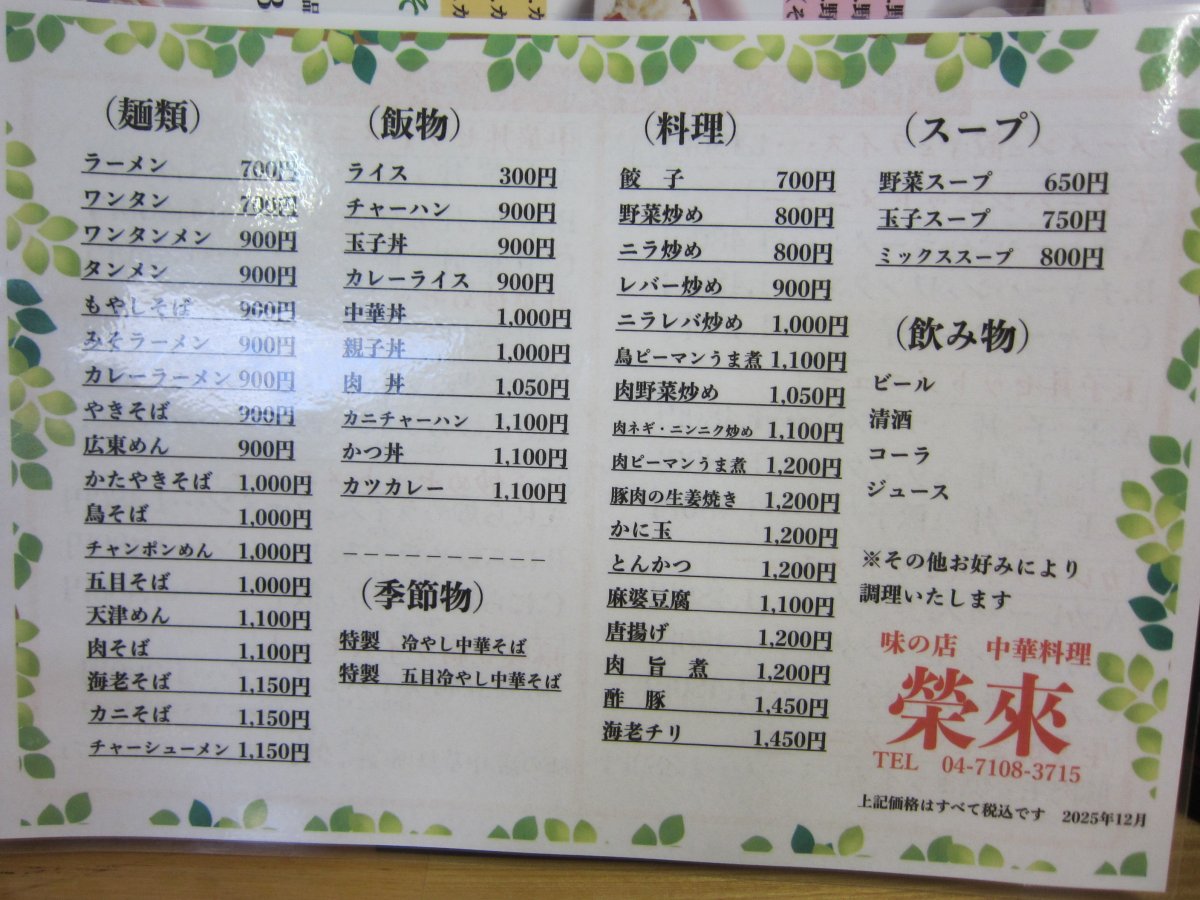 (麺類)
ラーメン 700円
ワンタン 700円
ワンタンメン 900円
タンメン 900円
もやしそば 900円
みそラーメン 900円
カレーラーメン 900円
やきそば 900円
広東めん 900円
かたやきそば 1,000円
鳥そば 1,000円
チャンポンめん 1,000円
五目そば 1,000円
天津めん 1,100円
肉そば 1,100円
海老そば 1,150円
カニそば 1,150円
チャーシューメン 1,150円
(飯物)
ライス 300円
チャーハン 900円
玉子丼 900円
カレーライス 900円
中華丼 1,000円
親子丼 1,000円
肉 丼 1,050円
カニチャーハン 1,100円
かつ丼 1,100円
カツカレー 1,100円
(季節物)
特製 冷やし中華そば
特製 五目冷やし中華そば
(料理)
餃 子 700円
野菜炒め 800円
ニラ炒め 800円
レバー炒め 900円
ニラレバ炒め 1,000円
鳥ピーマンうま煮 1,100円
肉野菜炒め 1,050円
肉ネギ・ニンニク炒め 1,100円
肉ピーマンうま煮 1,200円
豚肉の生姜焼き 1,200円
かに玉 1,200円
とんかつ 1,200円
麻婆豆腐 1,100円
唐揚げ 1,200円
肉 旨 煮 1,200円
酢 豚 1,450円
海老チリ 1,450円
(スープ)
野菜スープ 650円
玉子スープ 750円
ミックススープ 800円
(飲み物)
ビール
清酒
コーラ
ジュース
※その他お好みにより
調理いたします
味の店 中華料理
榮來
TEL 04-7108-3715
上記価格はすべて税込です 2025年12月